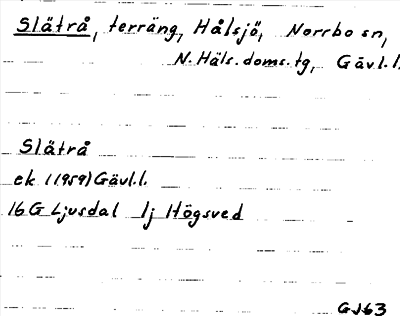 Slätrå, terräng, Hålsjö, Norrbo sn,
N. Häls. doms. tg, Gävl. l.
Slätrå
ek (1959) Gävl. l.
16 G Ljusdal 1j Högsved
GJ63